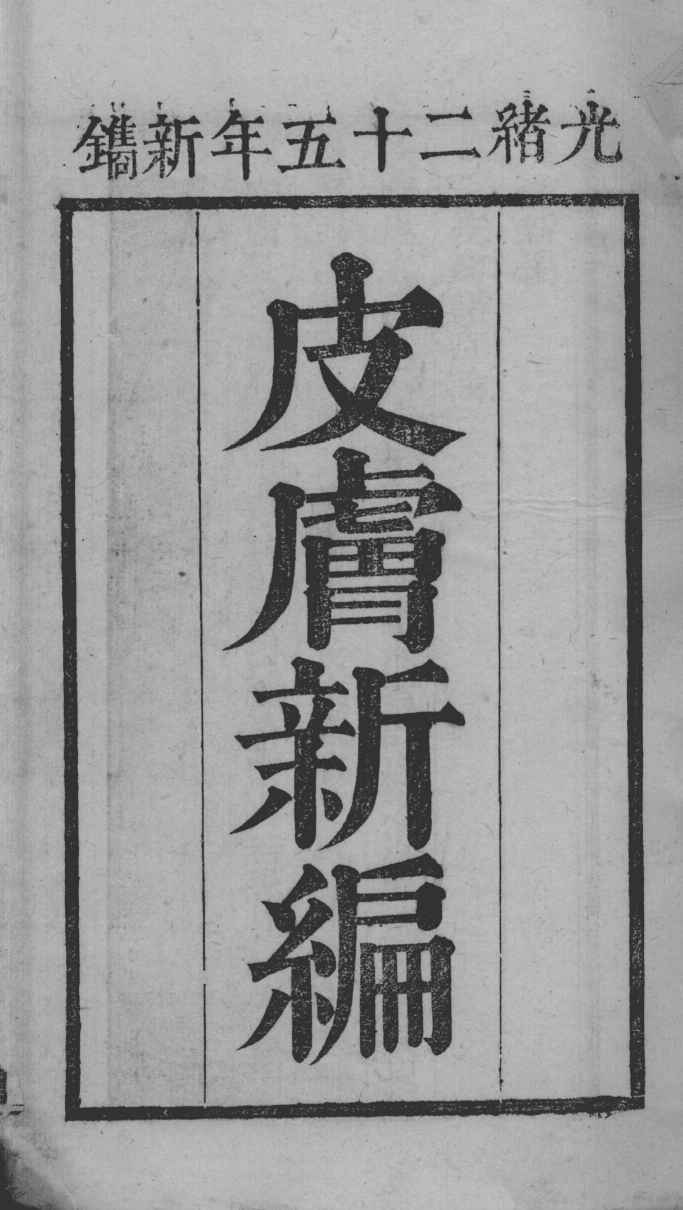 光緒二十五年新鐫
皮膚新編